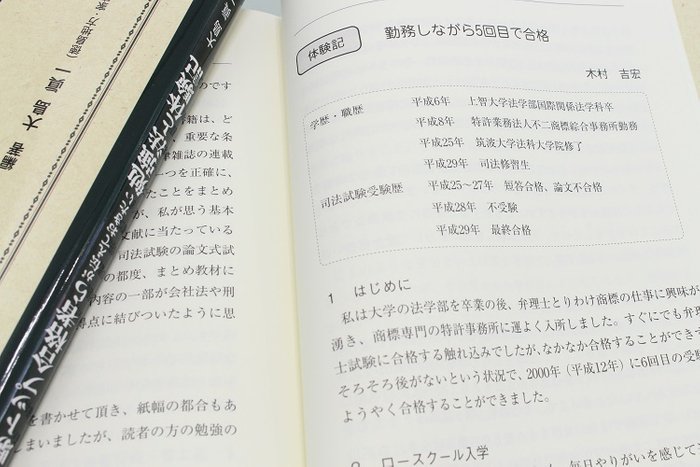 編著 大島 眞一 (徳島地方・家
大島 眞一
のです
書籍は、ど
、重要な条
律雑誌の連載
一つを正確に、
たことをまとめ
が、私が思う基本
文献に当たっている
司法試験の論文式試
の都度、まとめ教材に
内容の一部が会社法や刑
得点に結びついたように思
を書かせて頂き、紙幅の都合もあ
しまいましたが、読者の方の勉強の
体験記
勤務しながら5回目で合格
木村 吉宏
学歴・職歴
平成6年 上智大学法学部国際関係法学科卒
平成8年 特許業務法人不二商標綜合事務所勤務
平成25年 筑波大学法科大学院修了
平成29年 司法修習生
司法試験受験歴
平成25~27年 短答合格、論文不合格
平成28年 不受験
平成29年 最終合格
1 はじめに
私は大学の法学部を卒業の後、弁理士とりわけ商標の仕事に興味が
湧き、商標専門の特許事務所に運よく入所しました。すぐにでも弁理
士試験に合格する触れ込みでしたが、なかなか合格することができず
そろそろ後がないという状況で、2000年(平成12年)に6回目の受験
ようやく合格することができました。
2 ロースクール入学
毎日やりがいを感じて